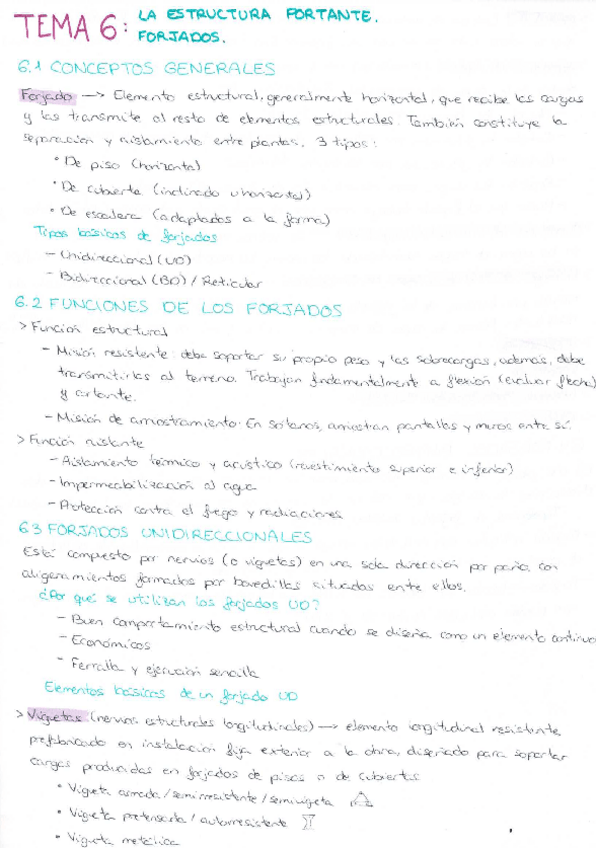 TEMA 6: LA ESTRUCTURA PORTANTE.
FORJADOS.
6.1 CONCEPTOS GENERALES
Forjado → Elemento estructural, generalmente horizontal, que recibe las cargas
y las transmite al resto de elementos estructurales. También constituye la
separación y aislamiento entre plantas. 3 tipos:
• De piso (horizontal)
• De cubierta (inclinado u horizontal)
• De escalera (adaptados a la forma)
Tipos básicos de forjados
- Unidireccional (UD)
- Bidireccional (BD) / Reticular
6.2 FUNCIONES DE LOS FORJADOS
> Función estructural
- Misión resistente: debe soportar su propio peso y las sobrecargas, además, debe
transmitirlas al terreno. Trabajan fundamentalmente a flexión (evaluar flecha)
y cortante.
- Misión de arriostramiento. En sótanos, arriostran pantallas y muros entre sí.
> Función aislante
- Aislamiento térmico y acústico (revestimiento superior e inferior)
- Impermeabilización al agua
- Protección contra el fuego y radiaciones
6.3 FORJADOS UNIDIRECCIONALES
Está compuesto por nervios (o viguetas) en una sola dirección por paño, con
aligeramientos formados por bovedillas situadas entre ellos.
¿Por qué se utilizan los forjados UD?
- Buen comportamiento estructural cuando se diseña como un elemento continuo
- Económicos
- Ferralla y ejecución sencilla
Elementos básicos de un forjado UD
> Viguetas (nervios estructurales longitudinales) → elemento longitudinal resistente
prefabricado en instalación fija exterior a la obra, diseñado para soportar
cargas producidas en forjados de pisos o de cubiertas
• Vigueta armada / semirresistente / semivigueta
• Vigueta pretensada / autorresistente
• Vigueta metálica